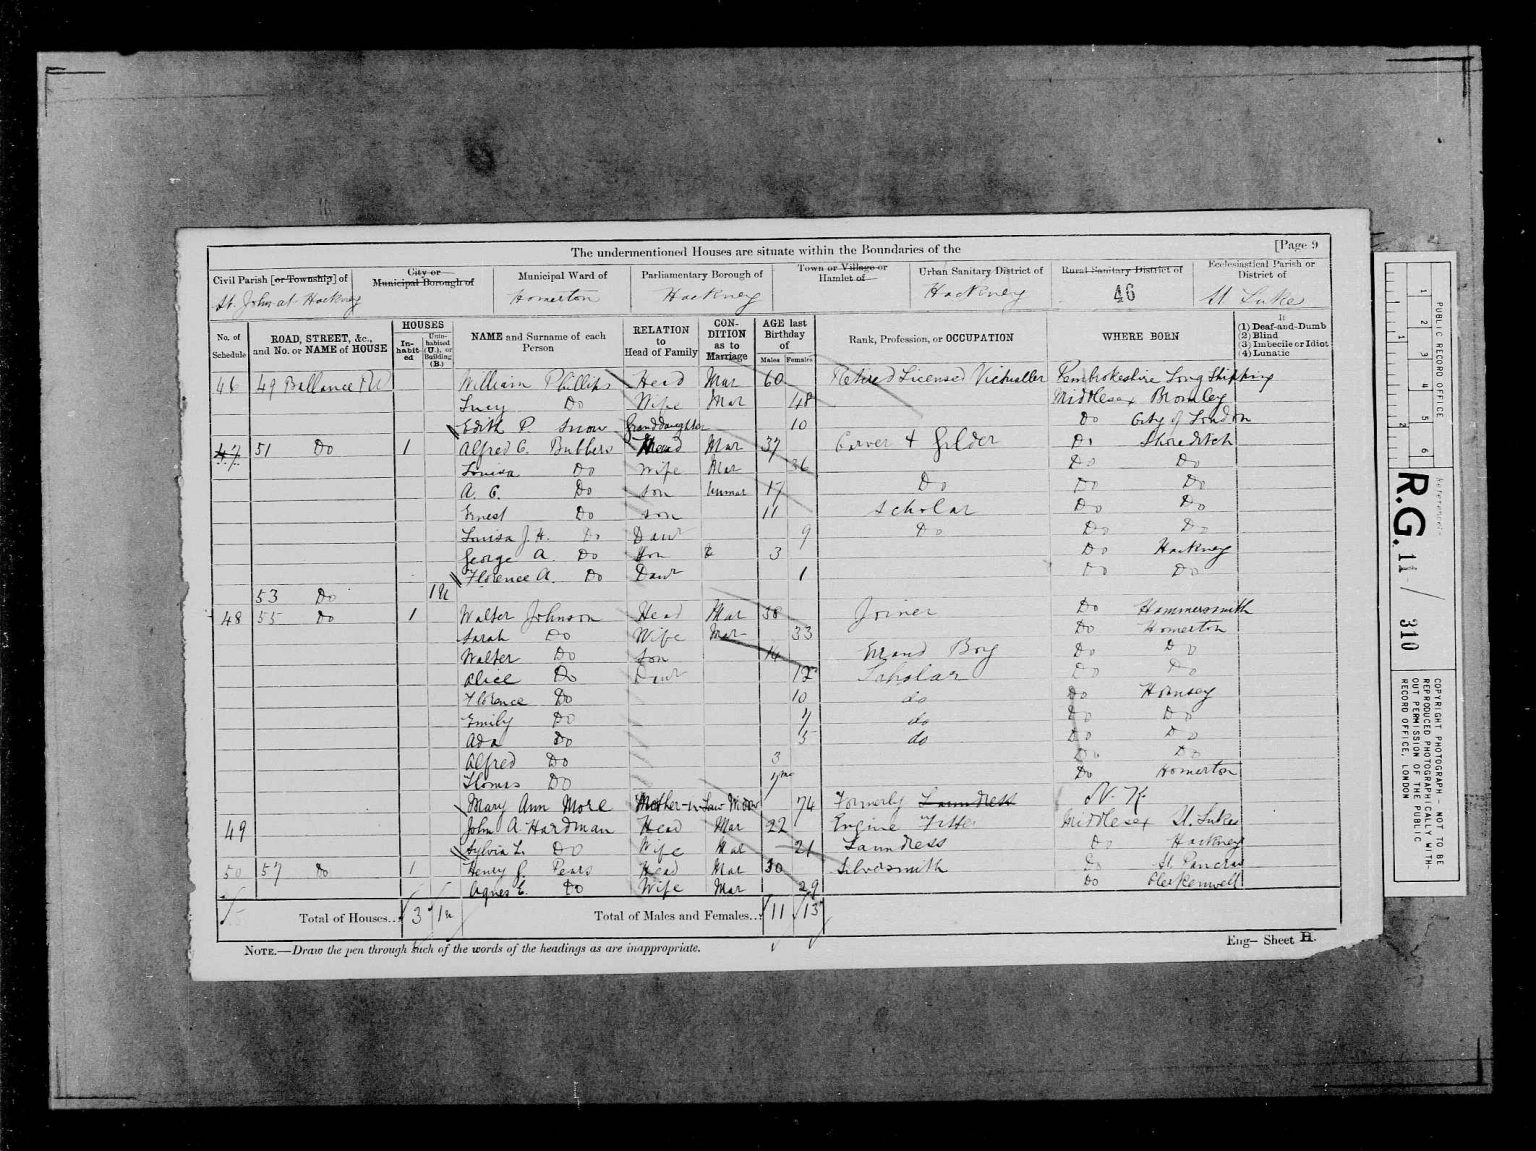 The undermentioned Houses are situate within the Boundaries of the
[Page 9
Civil Parish [or Township] of
City or Municipal Borough of
Municipal Ward of
Parliamentary Borough of
Town or Village or Hamlet of
Urban Sanitary District of
Rural Sanitary District of
Ecclesiastical Parish or District of
St. John at Hackney
Homerton
Hackney
Hackney
46
St Luke
No. of Schedule
ROAD, STREET, &c., and No. or NAME of HOUSE
HOUSES
In-habit ed
Unin-habited (U.), or Building (B.)
NAME and Surname of each Person
RELATION to Head of Family
CON-DITION as to Marriage
AGE last Birthday of
Males
Females
Rank, Profession, or OCCUPATION
WHERE BORN
If
(1) Deaf-and-Dumb
(2) Blind
(3) Imbecile or Idiot
(4) Lunatic
46 49 Ballance Rd William Phillips Head Mar 60 Retired Licensed Victualler Pembrokeshire Long Shipping
Lucy Do Wife Mar 48 Middlesex Bromley
Edith P Snow Granddaughter 10 Do City of London
47 51 Do 1 Alfred C. Bubbers Head Mar 37 Carver & Gilder Do Shoreditch
Louisa Do Wife Mar 36 Do Do
A. C. Do Son Unmar 17 Do Do Do
Ernest Do Son 11 Scholar Do Do
Louisa J. H. Do Daur 9 Do Do Do
George A. Do Son 3 Do Hackney
Florence A. Do Daur 1 Do Do
53 Do 1u
48 55 Do 1 Walter Johnson Head Mar 38 Joiner Do Hammersmith
Sarah Do Wife Mar 33 Do Homerton
Walter Do Son 14 Errand Boy Do Do
Alice Do Daur 12 Scholar Do Do
Florence Do 10 do Do Hornsey
Emily Do 7 do Do Do
Ada Do 5 do Do Do
Alfred Do 3 Do Do
Thomas Do 7mo Do Homerton
Mary Ann More Mother-in-Law Widow 74 Formerly Laundress N. K.
49 John A Hardman Head Mar 22 Engine Fitter Middlesex St. Lukes
Sylvia L. Do Wife Mar 21 Laundress Do Hackney
50 57 Do 1 Henry J. Pears Head Mar 30 Silversmith Do St Pancras
Agnes E. Do Wife Mar 29 Do Clerkenwell
Total of Houses... 3 1u Total of Males and Females... 11 13
NOTE.—Draw the pen through such of the words of the headings as are inappropriate.
Eng— Sheet H.
PUBLIC RECORD OFFICE
1 2 3 4 5 6
1 2
Reference:-
R.G. 11 / 310
COPYRIGHT PHOTOGRAPH - NOT TO BE
REPRODUCED PHOTOGRAPHICALLY WITH-
OUT PERMISSION OF THE PUBLIC
RECORD OFFICE, LONDON